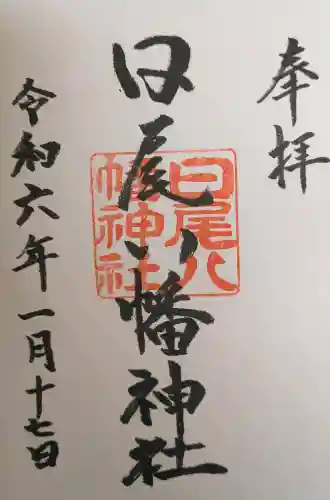 奉拝
日尾八幡神社
日尾八幡神社
令和六年一月十七日